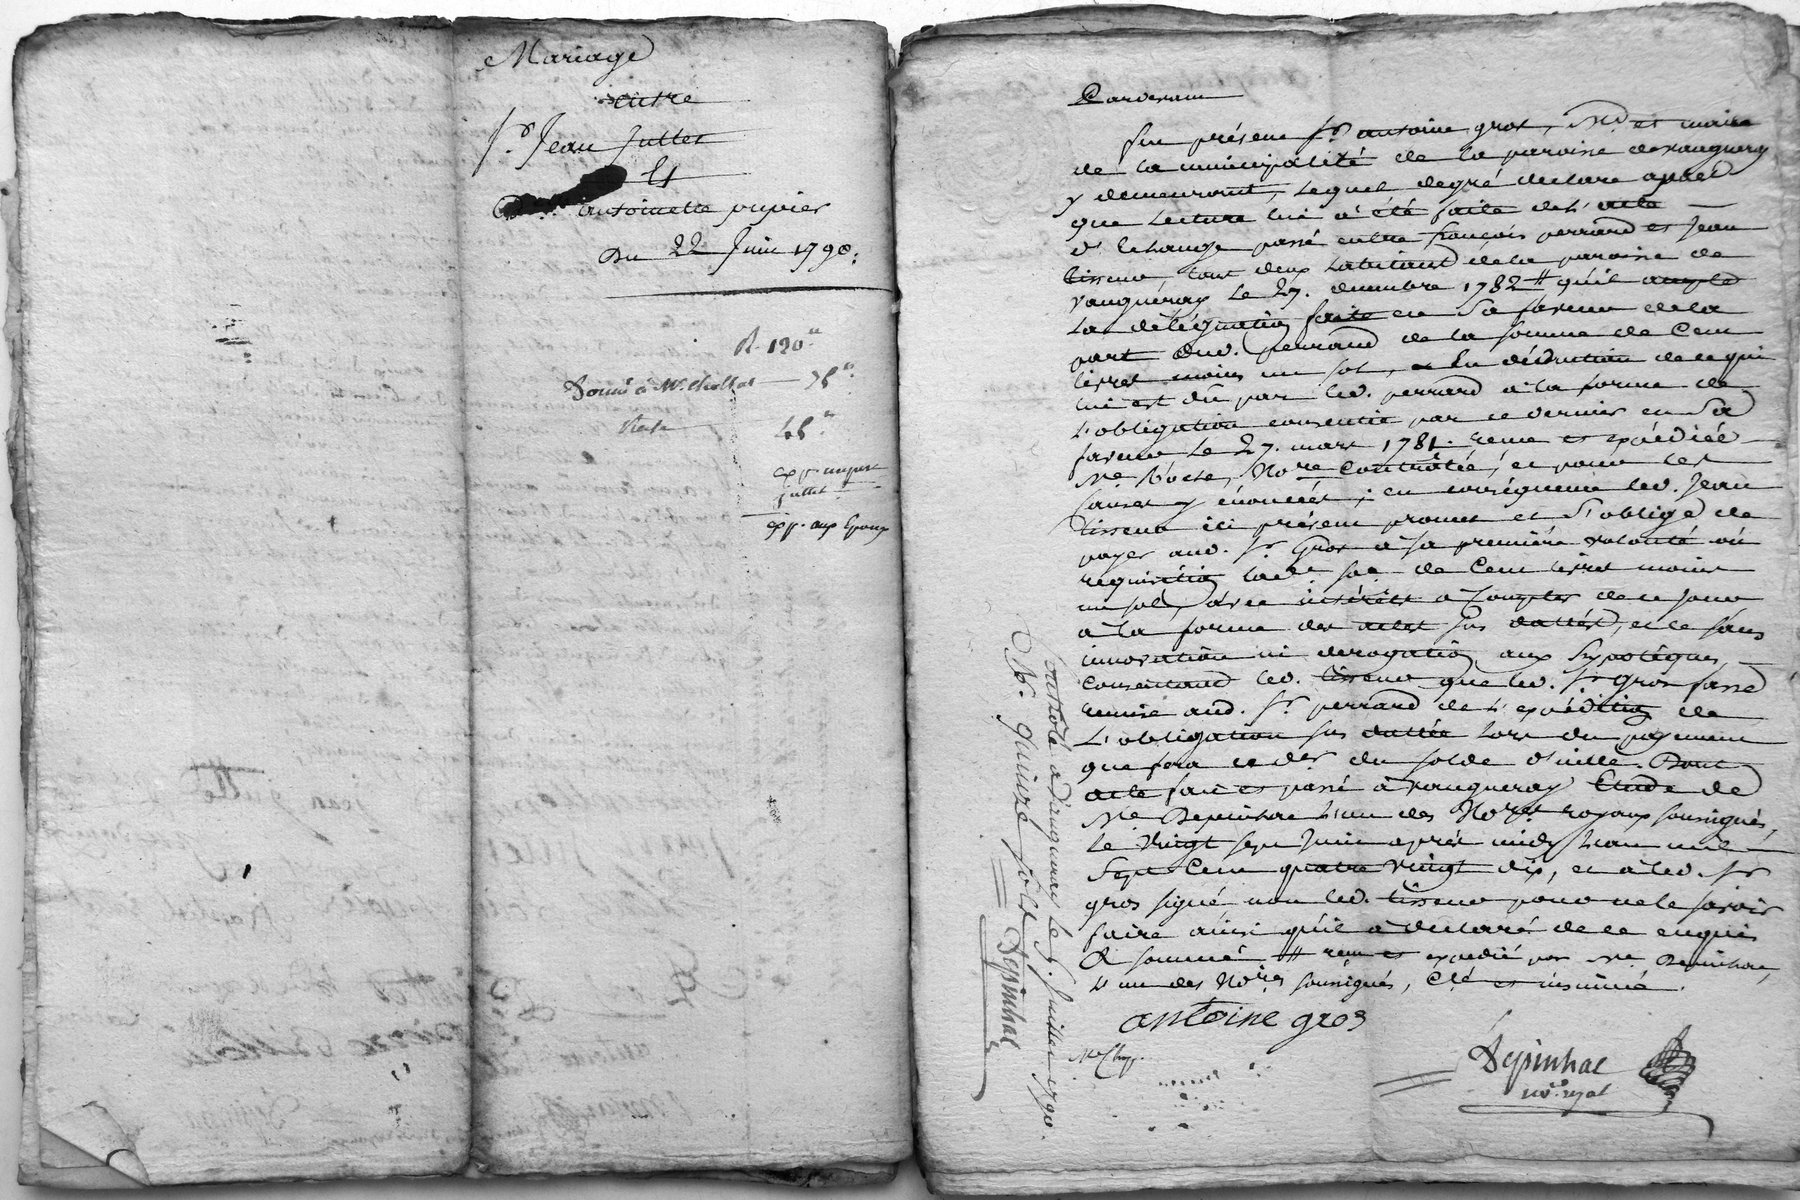 Mariage
entre
Sr. Jean Juttet
Et
antoinette pupier
Du 22 Juin 1790:
R. 120
Donné à Mr. 75
Reste 45
exp. 
Juttet
exp. aux Epoux
Pardevant
fut présent Sr. antoine gros, Md. et maire
de la municipalité de la paroisse de vaugneray
y demeurant, lequel degré declare après
que Lecture lui a été faite de l'acte
d'Echange passé entre françois perrard et Jean
tisseur, tous deux habitants de la paroisse de
vaugneray Le 27. decembre 1782 # qu'il accepte
La délégation faite en Sa faveur de la
part dud. perrard de la somme de Cent
livres moins un sol, en déduction de ce qui
lui est dû par led. perrard a la forme de
L'obligation consentie par ce dernier en Sa
faveur Le 27. mars 1781. reçue et expédiée
Me Nore Controlée, et pour les
causes y énoncées; en conséquence led. Jean
tisseur ici présent promet et S'oblige de
payer aud. Sr Gros a sa première volonté où
requisition lade. soe. de Cent livres moins
un sol, avec intérêts a Compter de ce jour
a la forme des actes sus dattés, et ce sans
innovation ni derogation aux hypotèques,
Consentant led. tisseur que led. Sr gros fasse
remise aud. Sr. perrard de L'expédition de
L'obligation sus dattée Lors du payement
que fera ce der. du solde d'icelle. Dont
acte fait et passé à vaugneray Etude de
Me Depinhac L'un des Nores royaux soussignés,
Le vingt sept Juin après midy L'an mil
Sept Cent quatre vingt dix, et a led. Sr
gros signé non led. tisseur pour ne le savoir
faire ainsi qu'il a déclaré de ce enquis
& sommé # reçu et expédié par Me Depinhac,
L'un des Nores soussignés, Clé et insinué.
antoine gros
Depinhac
no.re royal
Controlé a vaugneray le 5. Juillet 1790.
R. quinze sols Depinhac